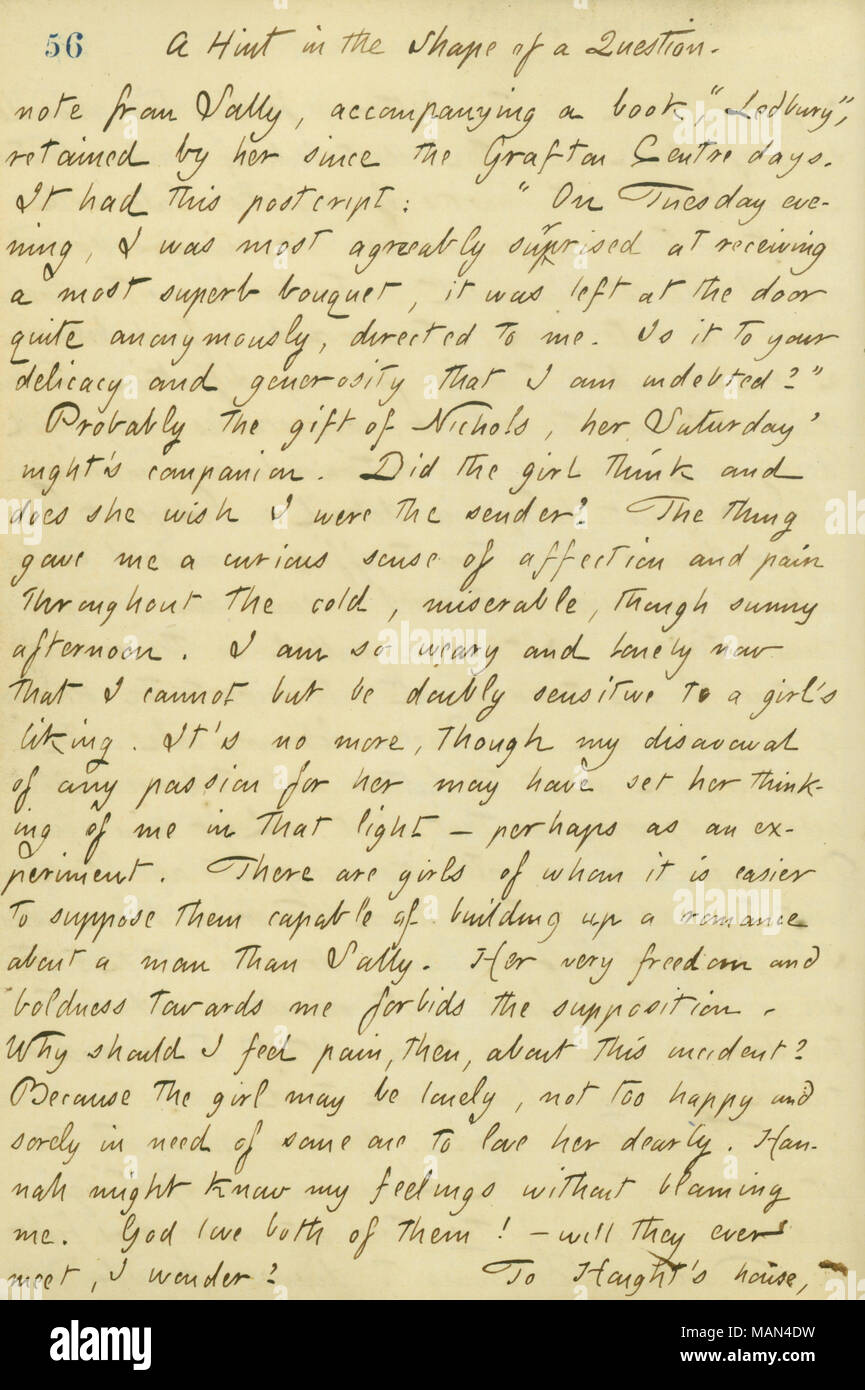 56 A Hint in the Shape of a Question.
note from Sally, accompanying a book, "Ledbury",
retained by her since the Grafton Centre days.
It had this postcript: "On Tuesday eve-
ning, I was most agreeably surprised at receiving
a most superb bouquet, it was left at the door
quite anonymously, directed to me. Is it to your
delicacy and generosity that I am indebted?"
Probably the gift of Nichols, her Saturday
night's companion. Did the girl think and
does she wish I were the sender? The thing
gave me a curious sense of affection and pain
throughout the cold, miserable, though sunny
afternoon. I am so weary and lonely now
that I cannot but be doubly sensitive to a girl's
liking. It's no more, though my disavowal
of any passion for her may have set her think-
ing of me in that light — perhaps as an ex-
periment. There are girls of whom it is easier
to suppose them capable of building up a romance
about a man than Sally. Her very freedom and
boldness towards me forbids the supposition.
Why should I feel pain, then, about this incident?
Because the girl may be lonely, not too happy and
sorely in need of some one to love her dearly. Han-
nah might know my feelings without blaming
me. God love both of them! — will they ever
meet, I wonder? To Haight's house,
alamy
Image ID: MAN4DW
www.alamy.com